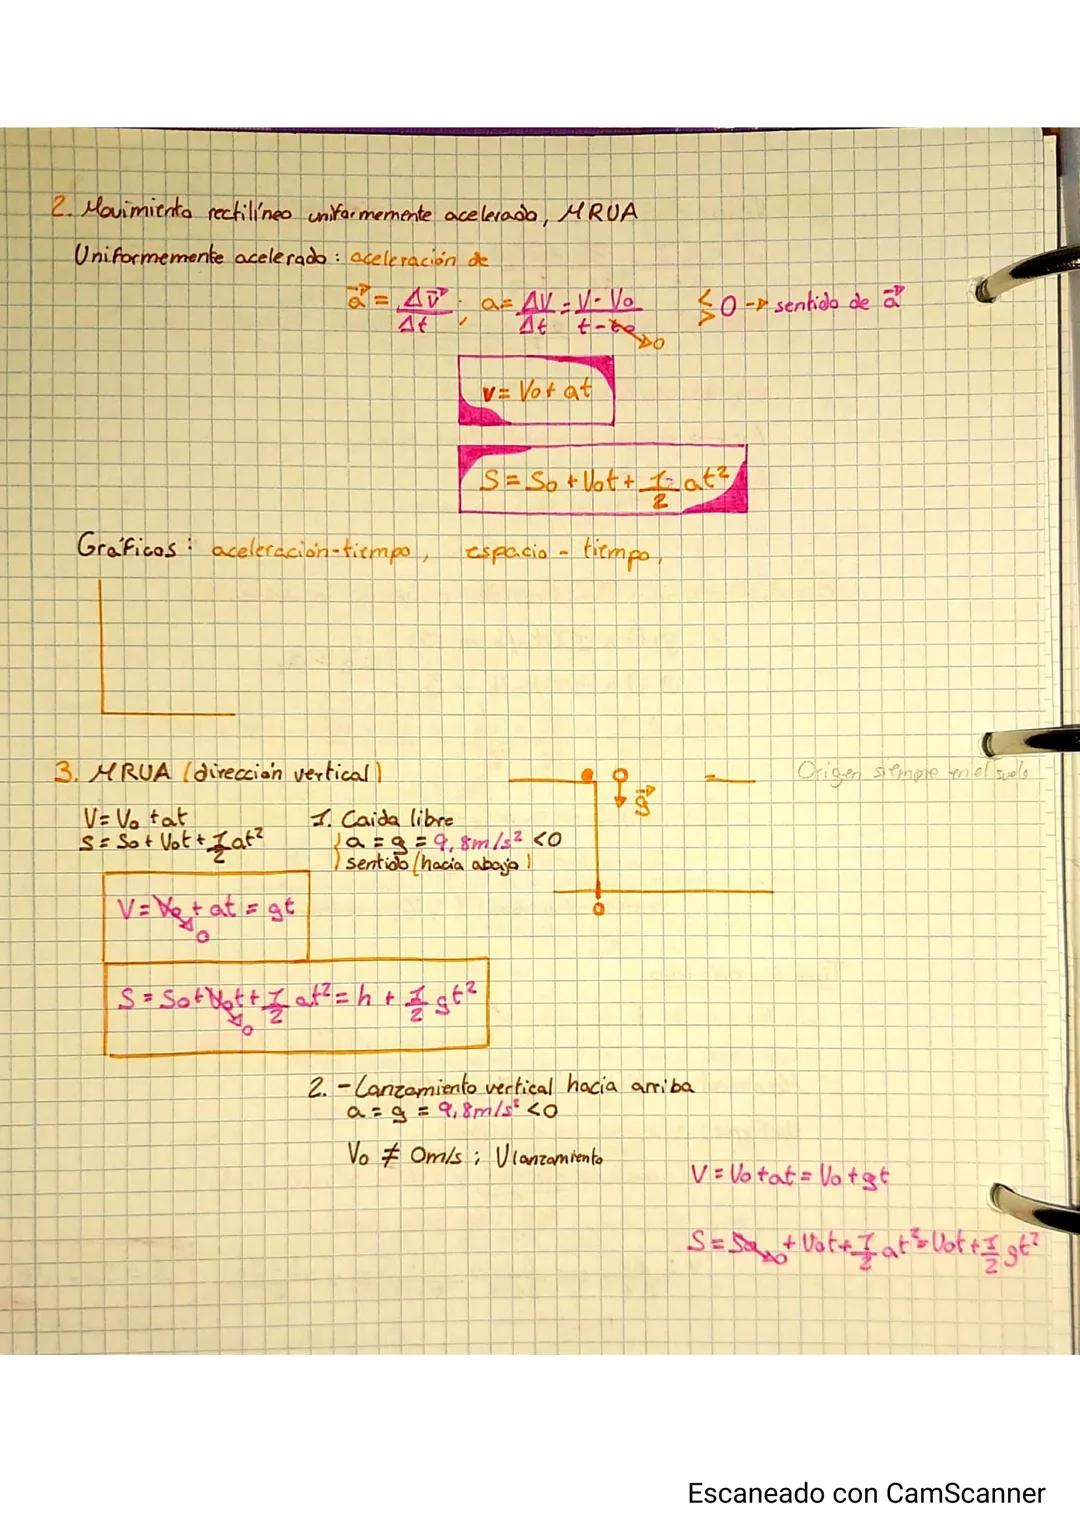 2. Movimiento rectilíneo uniformemente acelerado, MRUA
Uniformemente acelerado: aceleración de
a⃗ = Δv⃗/Δt ; a = ΔV/Δt = V-Vo/t-to →0 ≶ 0 → sentido de a⃗
v = Vo + at
S = So + Vot + 1/2 at²
Gráficos: aceleración-tiempo, espacio - tiempo,
3. MRUA (dirección vertical)
Origen siempre en el suelo
V = Vo + at
S = So + Vot + 1/2 at²
1. Caída libre
a = g = 9,8m/s² <0
sentido (hacia abajo)
g⃗
0
V = Vo + at = gt
0
S = So + Vot + 1/2 at² = h + 1/2 gt²
0
2. - Lanzamiento vertical hacia arriba
a = g = 9,8m/s² <0
Vo ≠ 0m/s ; Vlanzamiento
V = Vo + at = Vo + gt
S = So →0 + Vot + 1/2 at² = Vot + 1/2 gt²
Escaneado con CamScanner